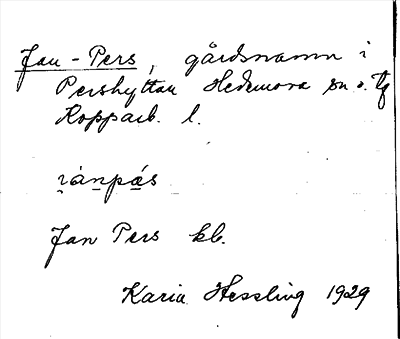 Jan-Pers, gårdsnamn i
Pershyttan Hedemora sn o. tg
Kopparb. l.
i̯ànpa̱s
Jan Pers kb.
Karia Hessling 1929